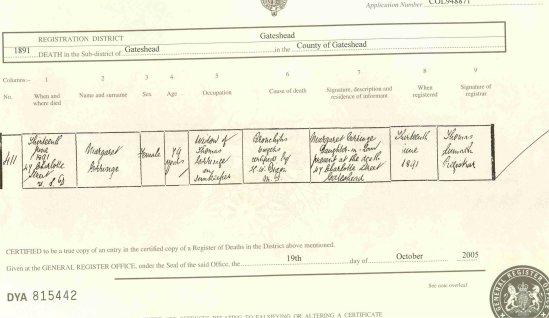 Application Number COL948871
REGISTRATION DISTRICT Gateshead
1891 DEATH in the Sub-district of Gateshead in the County of Gateshead
Columns:- 1 2 3 4 5 6 7 8 9
No. When and where died Name and surname Sex Age Occupation Cause of death Signature, description and residence of informant When registered Signature of registrar
411
Thirteenth
June
1891
27 Charlotte
Street
Margaret
Female
74
years
Widow of
Thomas
an
Innkeeper
Bronchitis
certified by
Margaret
Daughter-in-law
present at the death
27 Charlotte Street
Gateshead
Thirteenth
June
1891
Thomas
Registrar
CERTIFIED to be a true copy of an entry in the certified copy of a Register of Deaths in the District above mentioned.
Given at the GENERAL REGISTER OFFICE, under the Seal of the said Office, the 19th day of October 2005
DYA 815442
See note overleaf
GENERAL REGISTER OFFICE
RELATING TO FALSIFYING OR ALTERING A CERTIFICATE